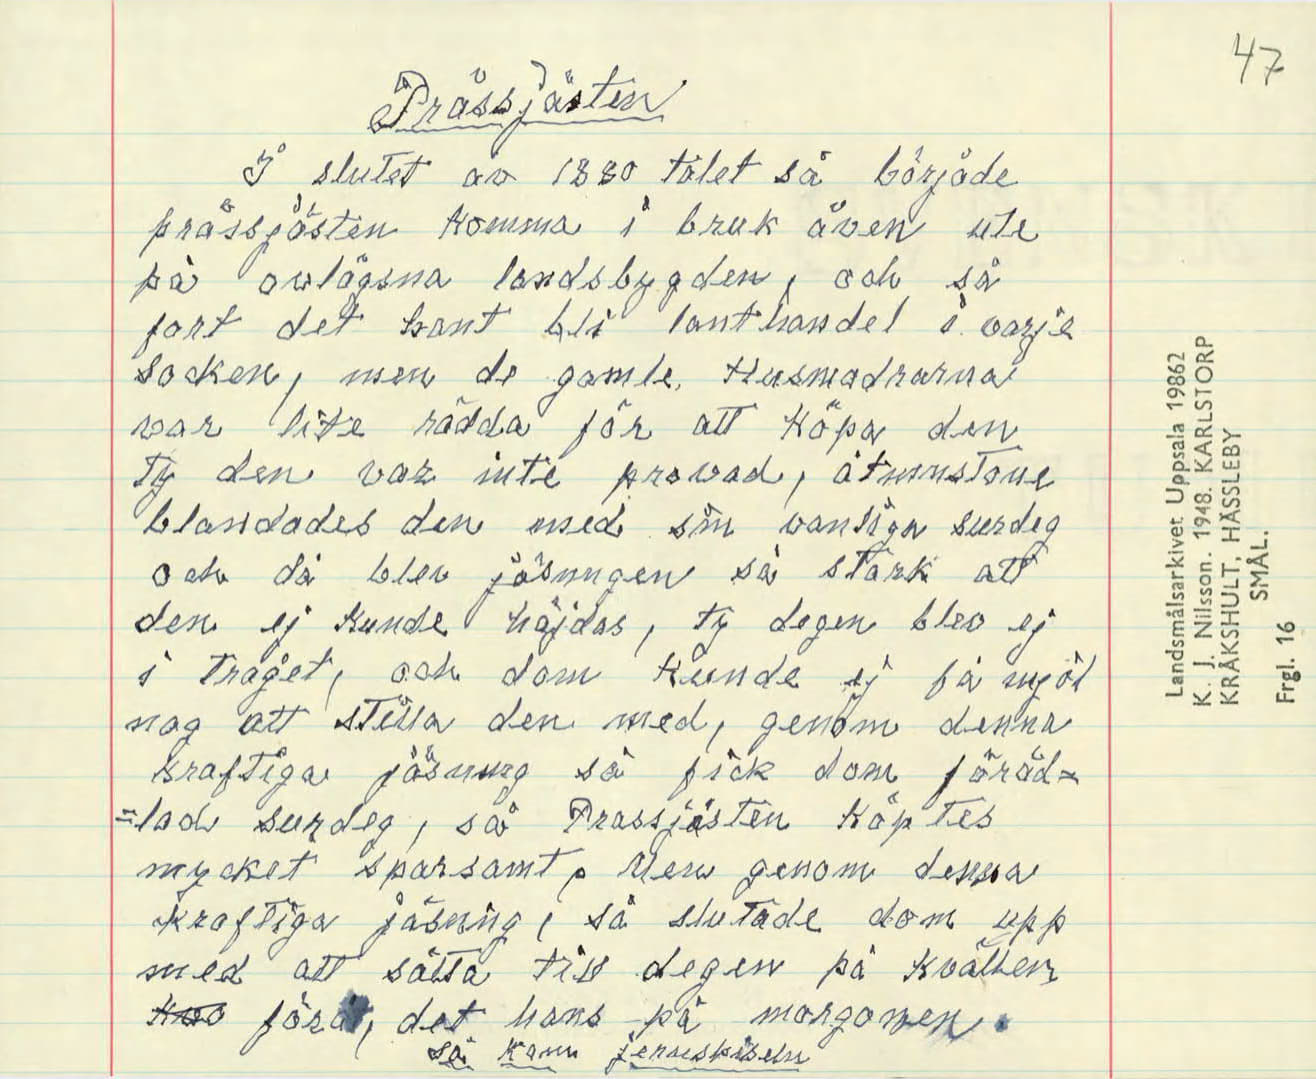 47
Prässjästen
I slutet av 1880 talet så började
prässjästen komma i bruk även ute
på avlägsna landsbygden, och så
fort det hant bli lanthandel i varje
socken, men de gamle Husmodrarna
var lite rädda för att köpa den
ty den var inte provad, åtminstone
blandades den med sin vanliga surdeg
och då blev jäsningen så stark att
den ej kunde häjdas, ty degen blev ej
i tråget, och dom kunde ej få mjöl
nog att stilla den med, genom denna
kraftiga jäsning så fick dom föräd=
=lad surdeg, så Prassjästen köptes
mycket sparsamt. Men genom denna
kraftiga jäsning, så slutade dom upp
med att sätta till degen på kvällen
förut, det hans på morgonen.
så kam jernspiseln
Landsmålsarkivet Uppsala 19862
K. J. Nilsson. 1948. KARLSTORP
KRÅKSHULT, HÄSSLEBY
SMÅL.
Frgl. 16